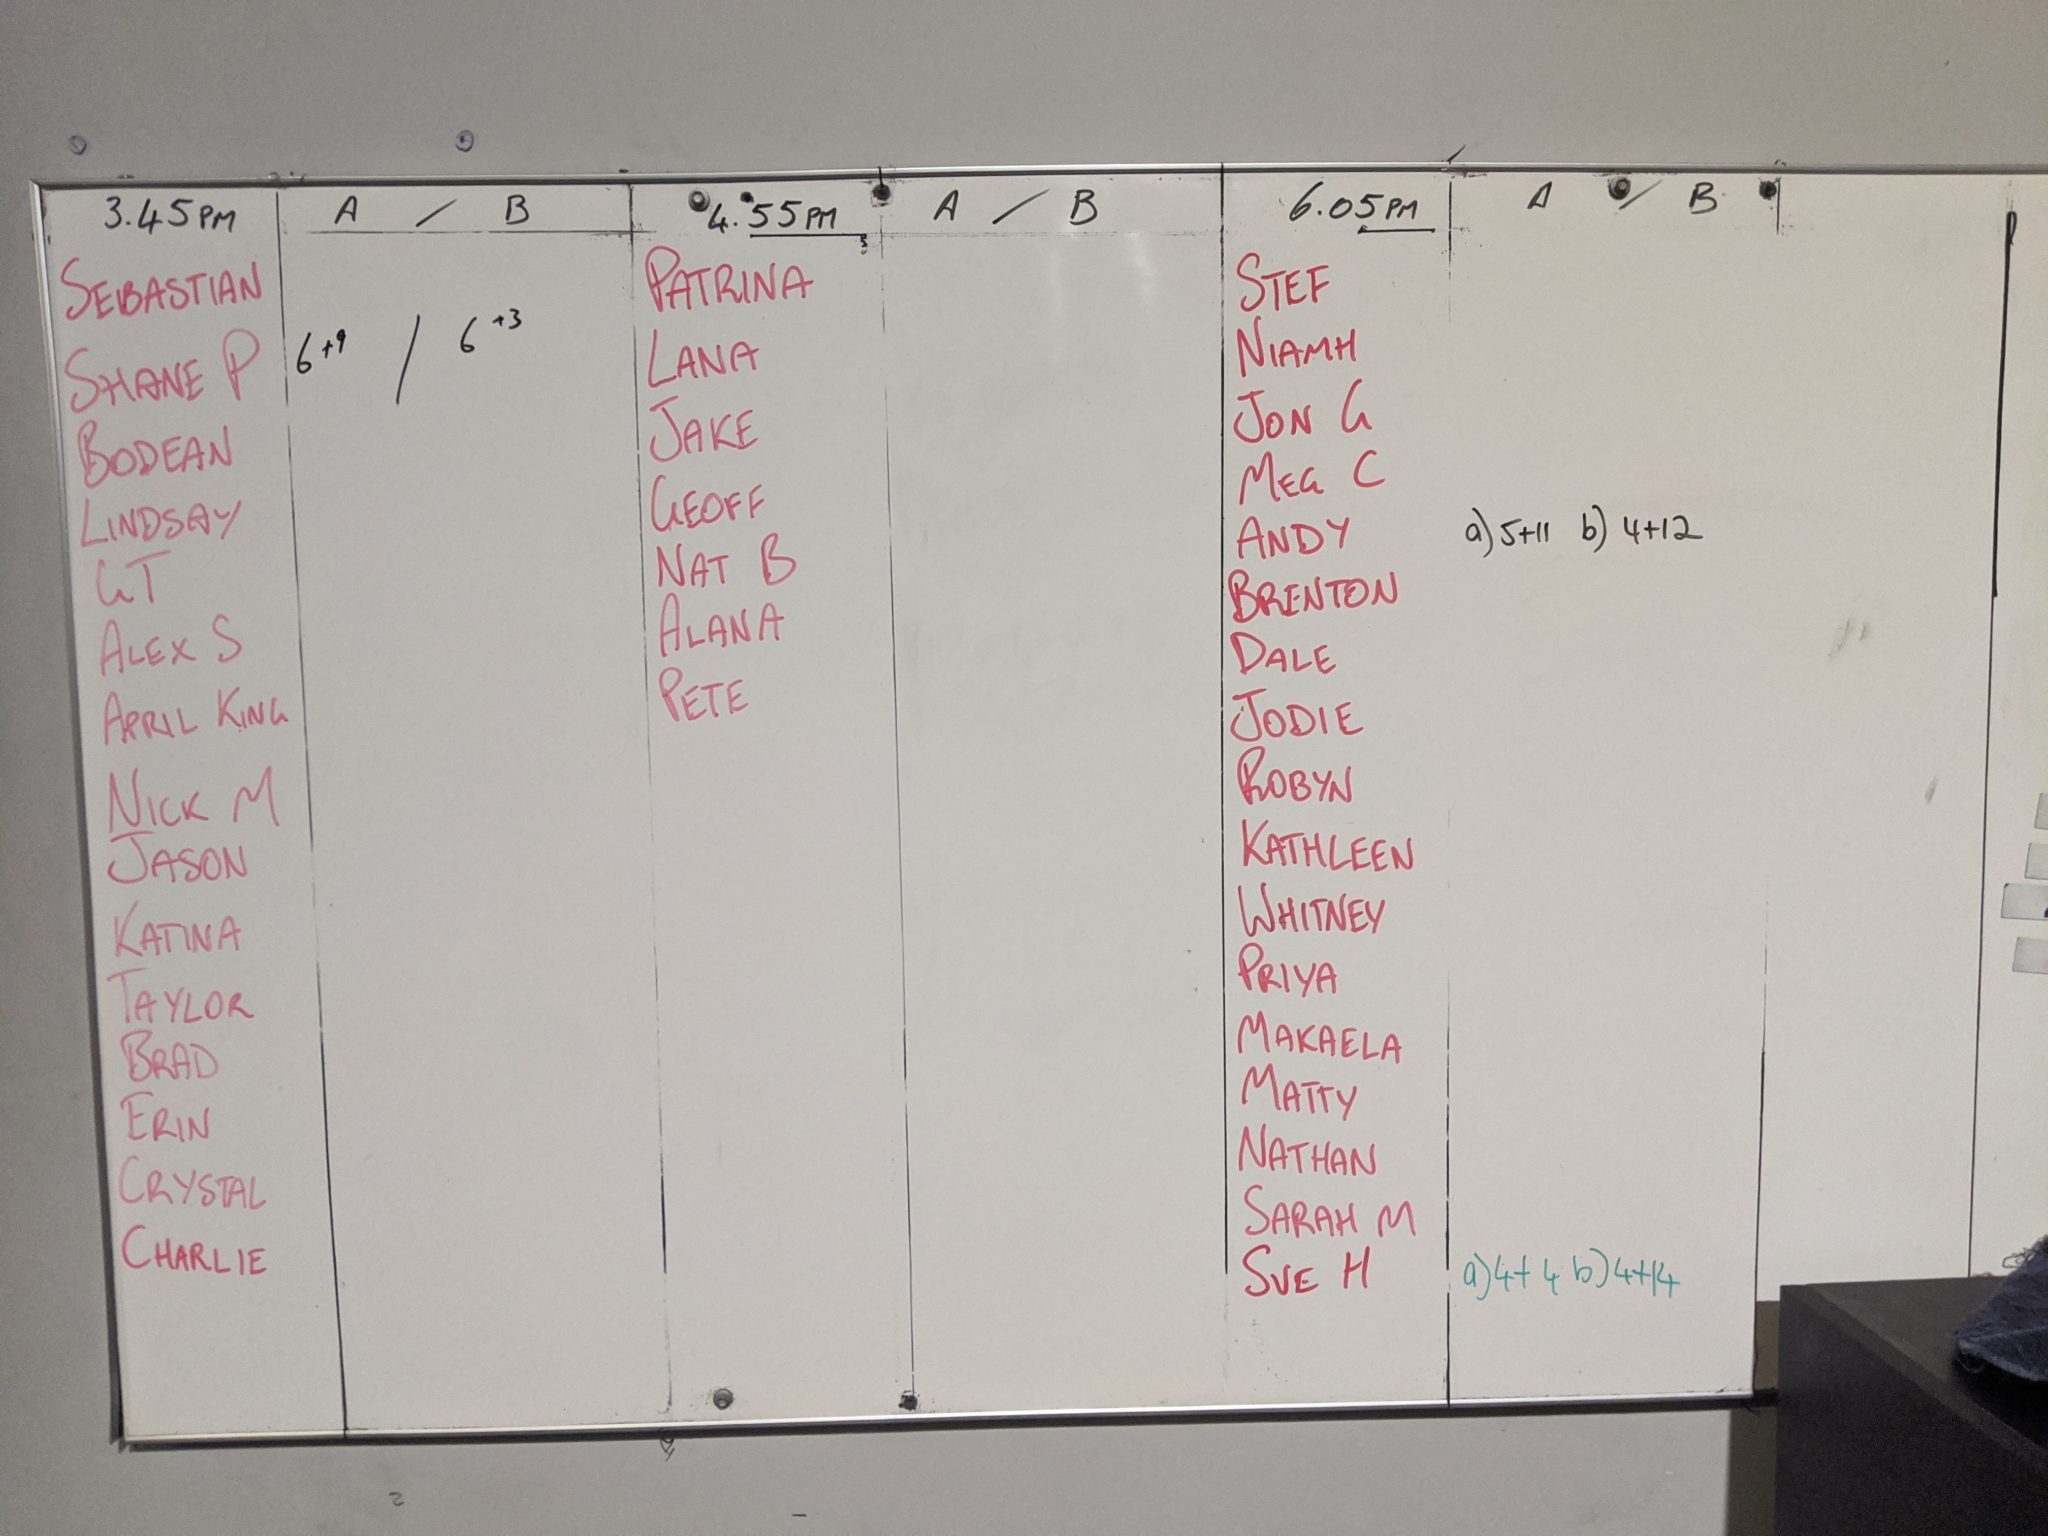 3.45PM A / B 4.55PM A / B 6.05PM A / B
SEBASTIAN
SHANE P 6+9 / 6+3
BODEAN
LINDSAY
GT
ALEX S
APRIL KING
NICK M
JASON
KATINA
TAYLOR
BRAD
ERIN
CRYSTAL
CHARLIE
PATRINA
LANA
JAKE
GEOFF
NAT B
ALANA
PETE
STEF
NIAMH
JON G
MEG C
ANDY a) 5+11 b) 4+12
BRENTON
DALE
JODIE
ROBYN
KATHLEEN
WHITNEY
PRIYA
MAKAELA
MATTY
NATHAN
SARAH M
SUE H a) 4+4 b) 4+14